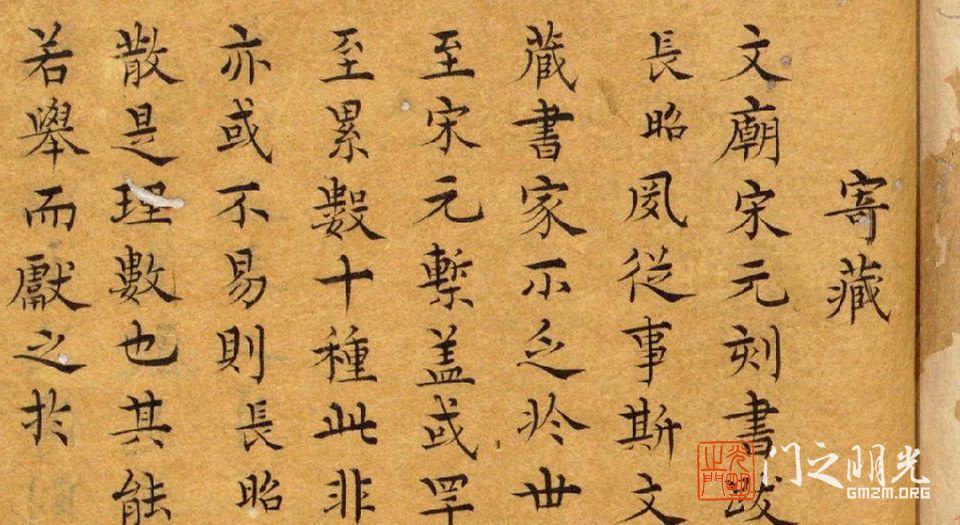 寄藏
文廟宋元刻書跋
長昭夙從事斯文
藏書家不乏扵世
至宋元槧盖或罕
至累數十種此非
亦或不易則長昭
散是理數也其能
若舉而獻之扵
光明之門
门之明光
GMZM.ORG